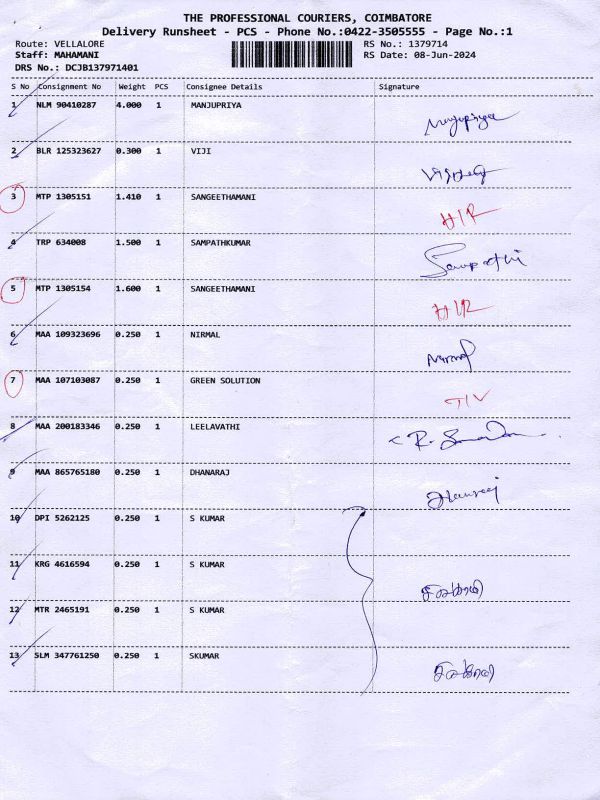 THE PROFESSIONAL COURIERS, COIMBATORE
Delivery Runsheet - PCS - Phone No.:0422-3505555 - Page No.:1
Route: VELLALORE RS No.: 1379714
Staff: MAHAMANI RS Date: 08-Jun-2024
DRS No.: DCJB137971401
S No Consignment No Weight PCS Consignee Details Signature
1 NLM 90410287 4.000 1 MANJUPRIYA Manjupriya
2 BLR 125323627 0.300 1 VIJI
3 MTP 1305151 1.410 1 SANGEETHAMANI H/R
4 TRP 634008 1.500 1 SAMPATHKUMAR Sampathi
5 MTP 1305154 1.600 1 SANGEETHAMANI H/R
6 MAA 109323696 0.250 1 NIRMAL Nirmal
7 MAA 107103087 0.250 1 GREEN SOLUTION
8 MAA 200183346 0.250 1 LEELAVATHI
9 MAA 865765180 0.250 1 DHANARAJ Dhanraj
10 DPI 5262125 0.250 1 S KUMAR
11 KRG 4616594 0.250 1 S KUMAR
12 MTR 2465191 0.250 1 S KUMAR
13 SLM 347761250 0.250 1 SKUMAR